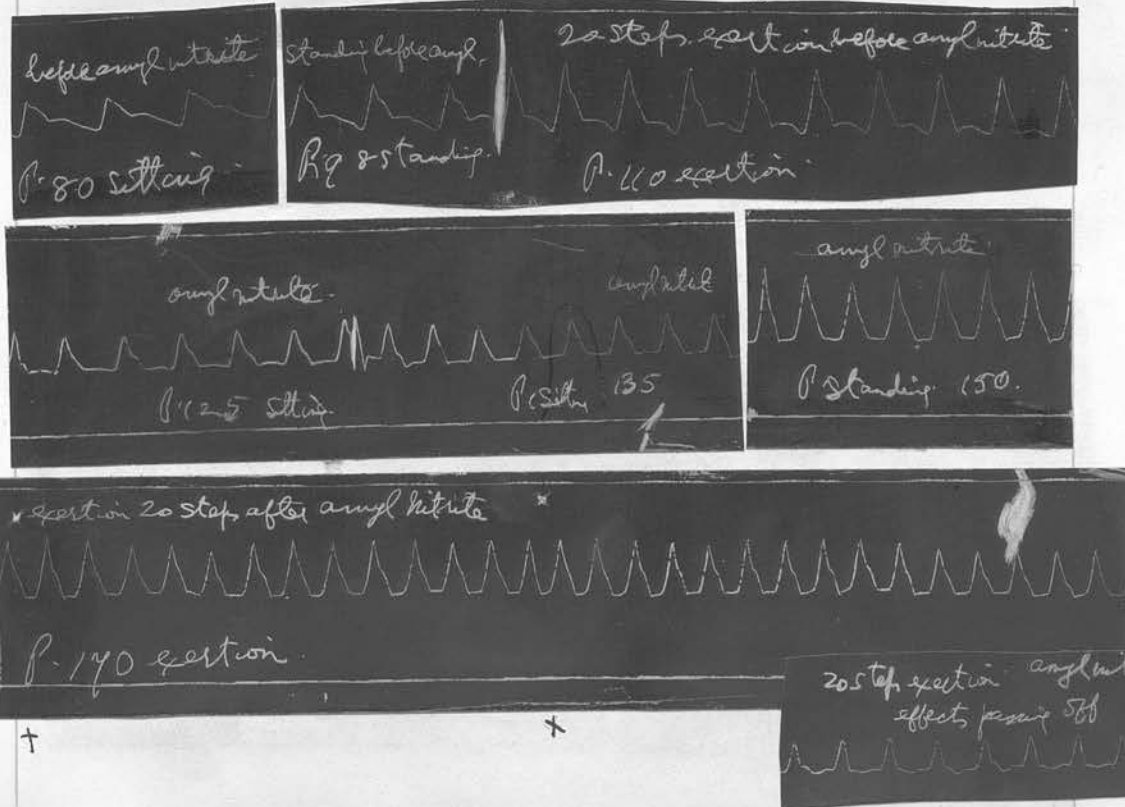 before amyl nitrite
P. 80 sitting
standing before amyl.
P. 98 standing.
20 steps. exertion before amyl nitrite
P. 110 exertion
amyl nitrite.
P. 125 sitting
amyl nitrit
P. Sitting 135
amyl nitrite.
P standing 150.
x exertion 20 steps after amyl nitrite x
P. 170 exertion.
20 steps exertion amyl nit
effects passing off
+ x